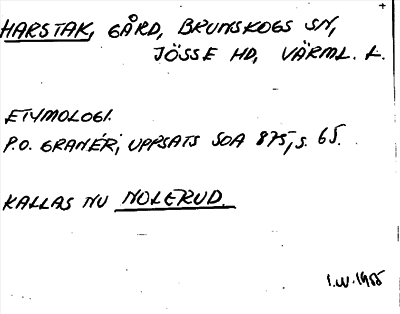 HARSTAK, GÅRD, BRUNSKOGS SN,
JÖSSE HD, VÄRML. L.
ETYMOLOGI.
P.O. GRANÉR, UPPSATS SOA 875, S. 65.
KALLAS NU NOLERUD.
I.W. 1955